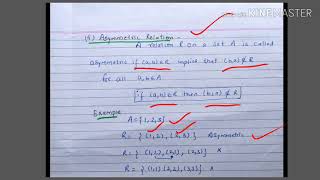 KINEMASTER
(5) Asymmetric Relation -
A relation R on a set A is called
asymmetric if (a,b)∈R implies that (b,a)∉R
for all a,b∈A
if (a,b)∈R then (b,a)∉R
Example
A = {1,2,3}
R = { (1,2), (2,3) } Asymmetric
R = { (1,1), (2,1), (2,3)} ×
R = { (1,1) (2,2), (3,3)} ×